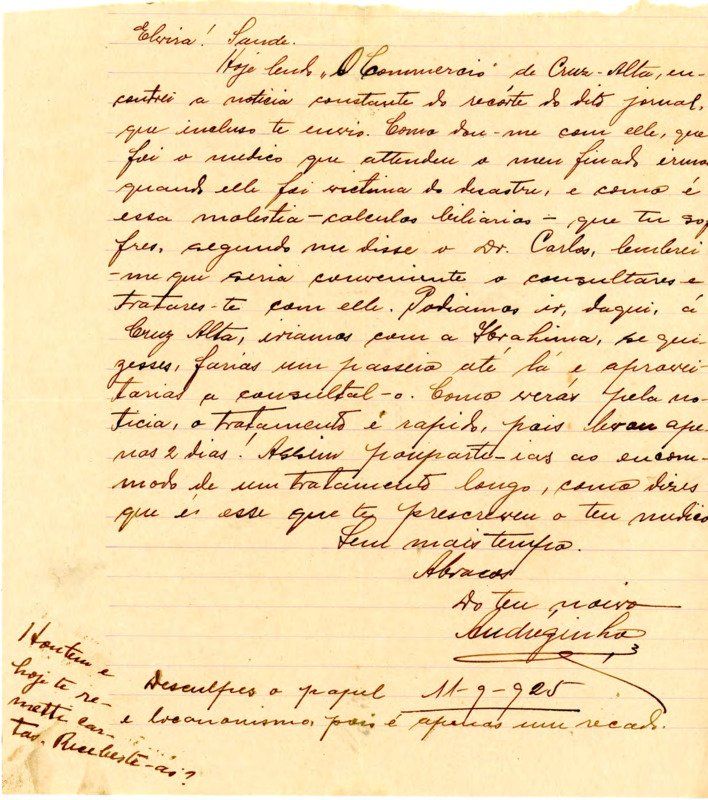 Elvira! Saude.
Hoje lendo "O Commercio" de Cruz-Alta, en-
contrei a noticia constante do recórte do dito jornal,
que incluso te envio. Como dou-me com elle, que
foi o medico que attendeu o meu finado irmão
quando elle foi victima do desastre, e como é
essa molestia - calculos biliarios - que tu sof
fres, segundo me disse o Dr. Carlos, lembrei
-me que seria conveniente o consultares e
tratares-te com elle. Podiamos ir, daqui, á
Cruz Alta, iriamos com a Ibrahima, se qui-
zesses, farias um passeio até lá e aprovei-
tarias a consultal-o. Como verás pela no-
ticia, o tratamento é rapido, pois levou ape-
nas 2 dias! Assim pouparte-ias ao encom-
modo de um tratamento longo, como dizes
que é esse que te prescreveu o teu medico
Sem mais tempo.
Abraços
Do teu noivo
Andréginho
Desculpes o papel 11-9-925
e laconismo, pois é apenas um recado.
Hontem e
hoje te re-
metti car-
tas. Recebeste-as?